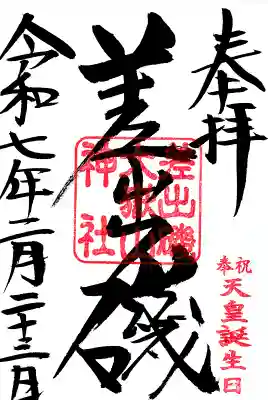 奉拝
奉祝
天皇誕生日
差出磯
差出磯
大嶽山
神社
令和七年二月二十三日